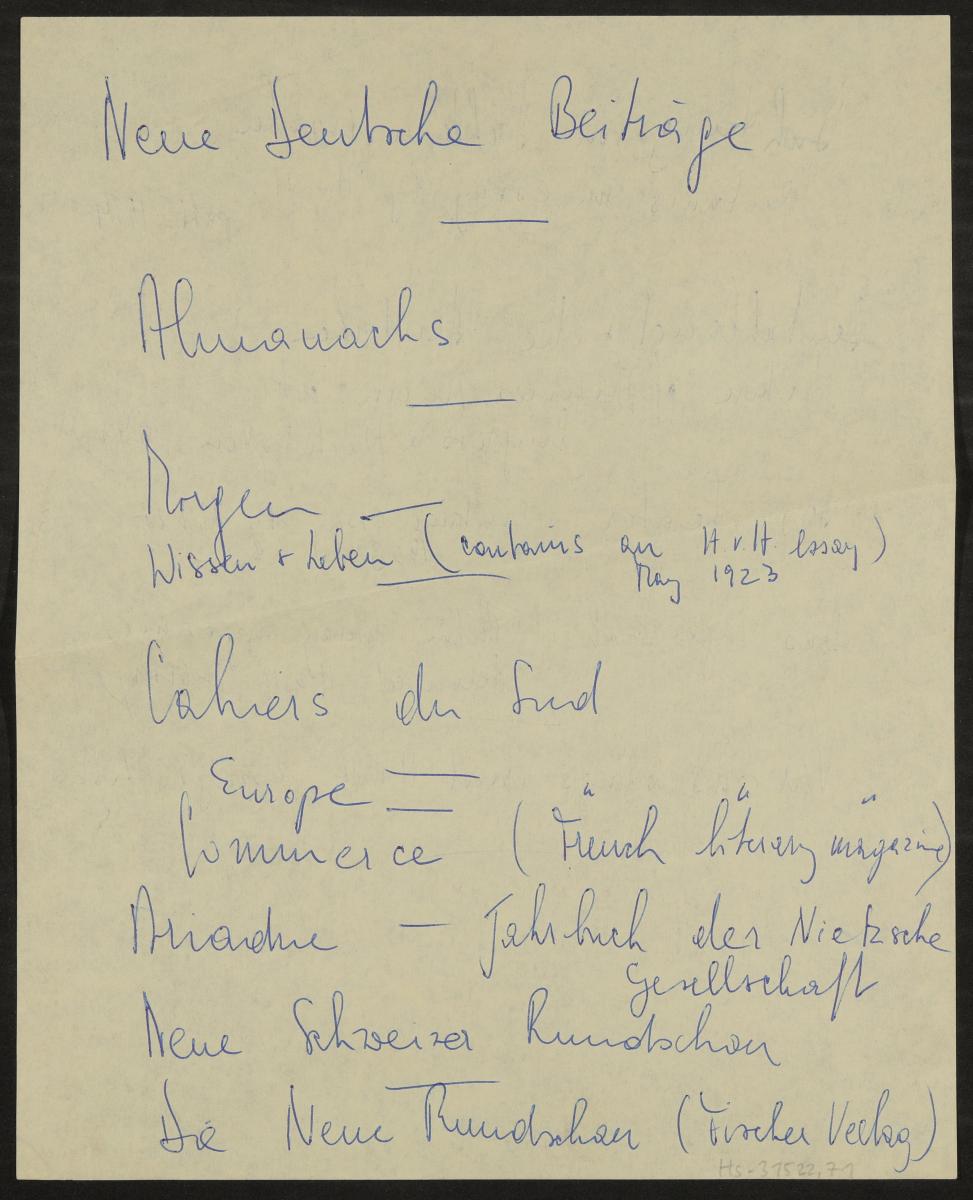 Neue Deutsche Beiträge
Almanachs
Morgen —
Wissen + Leben (contains an H. v. H. essay)
May 1923
Cahiers du Sud
Europe —
" " "
Commerce (French literary magazine)
Ariadne — Jahrbuch der Nietzsche
Gesellschaft
Neue Schweizer Rundschau
Die Neue Rundschau (Fischer Verlag)
Hs-31522,71